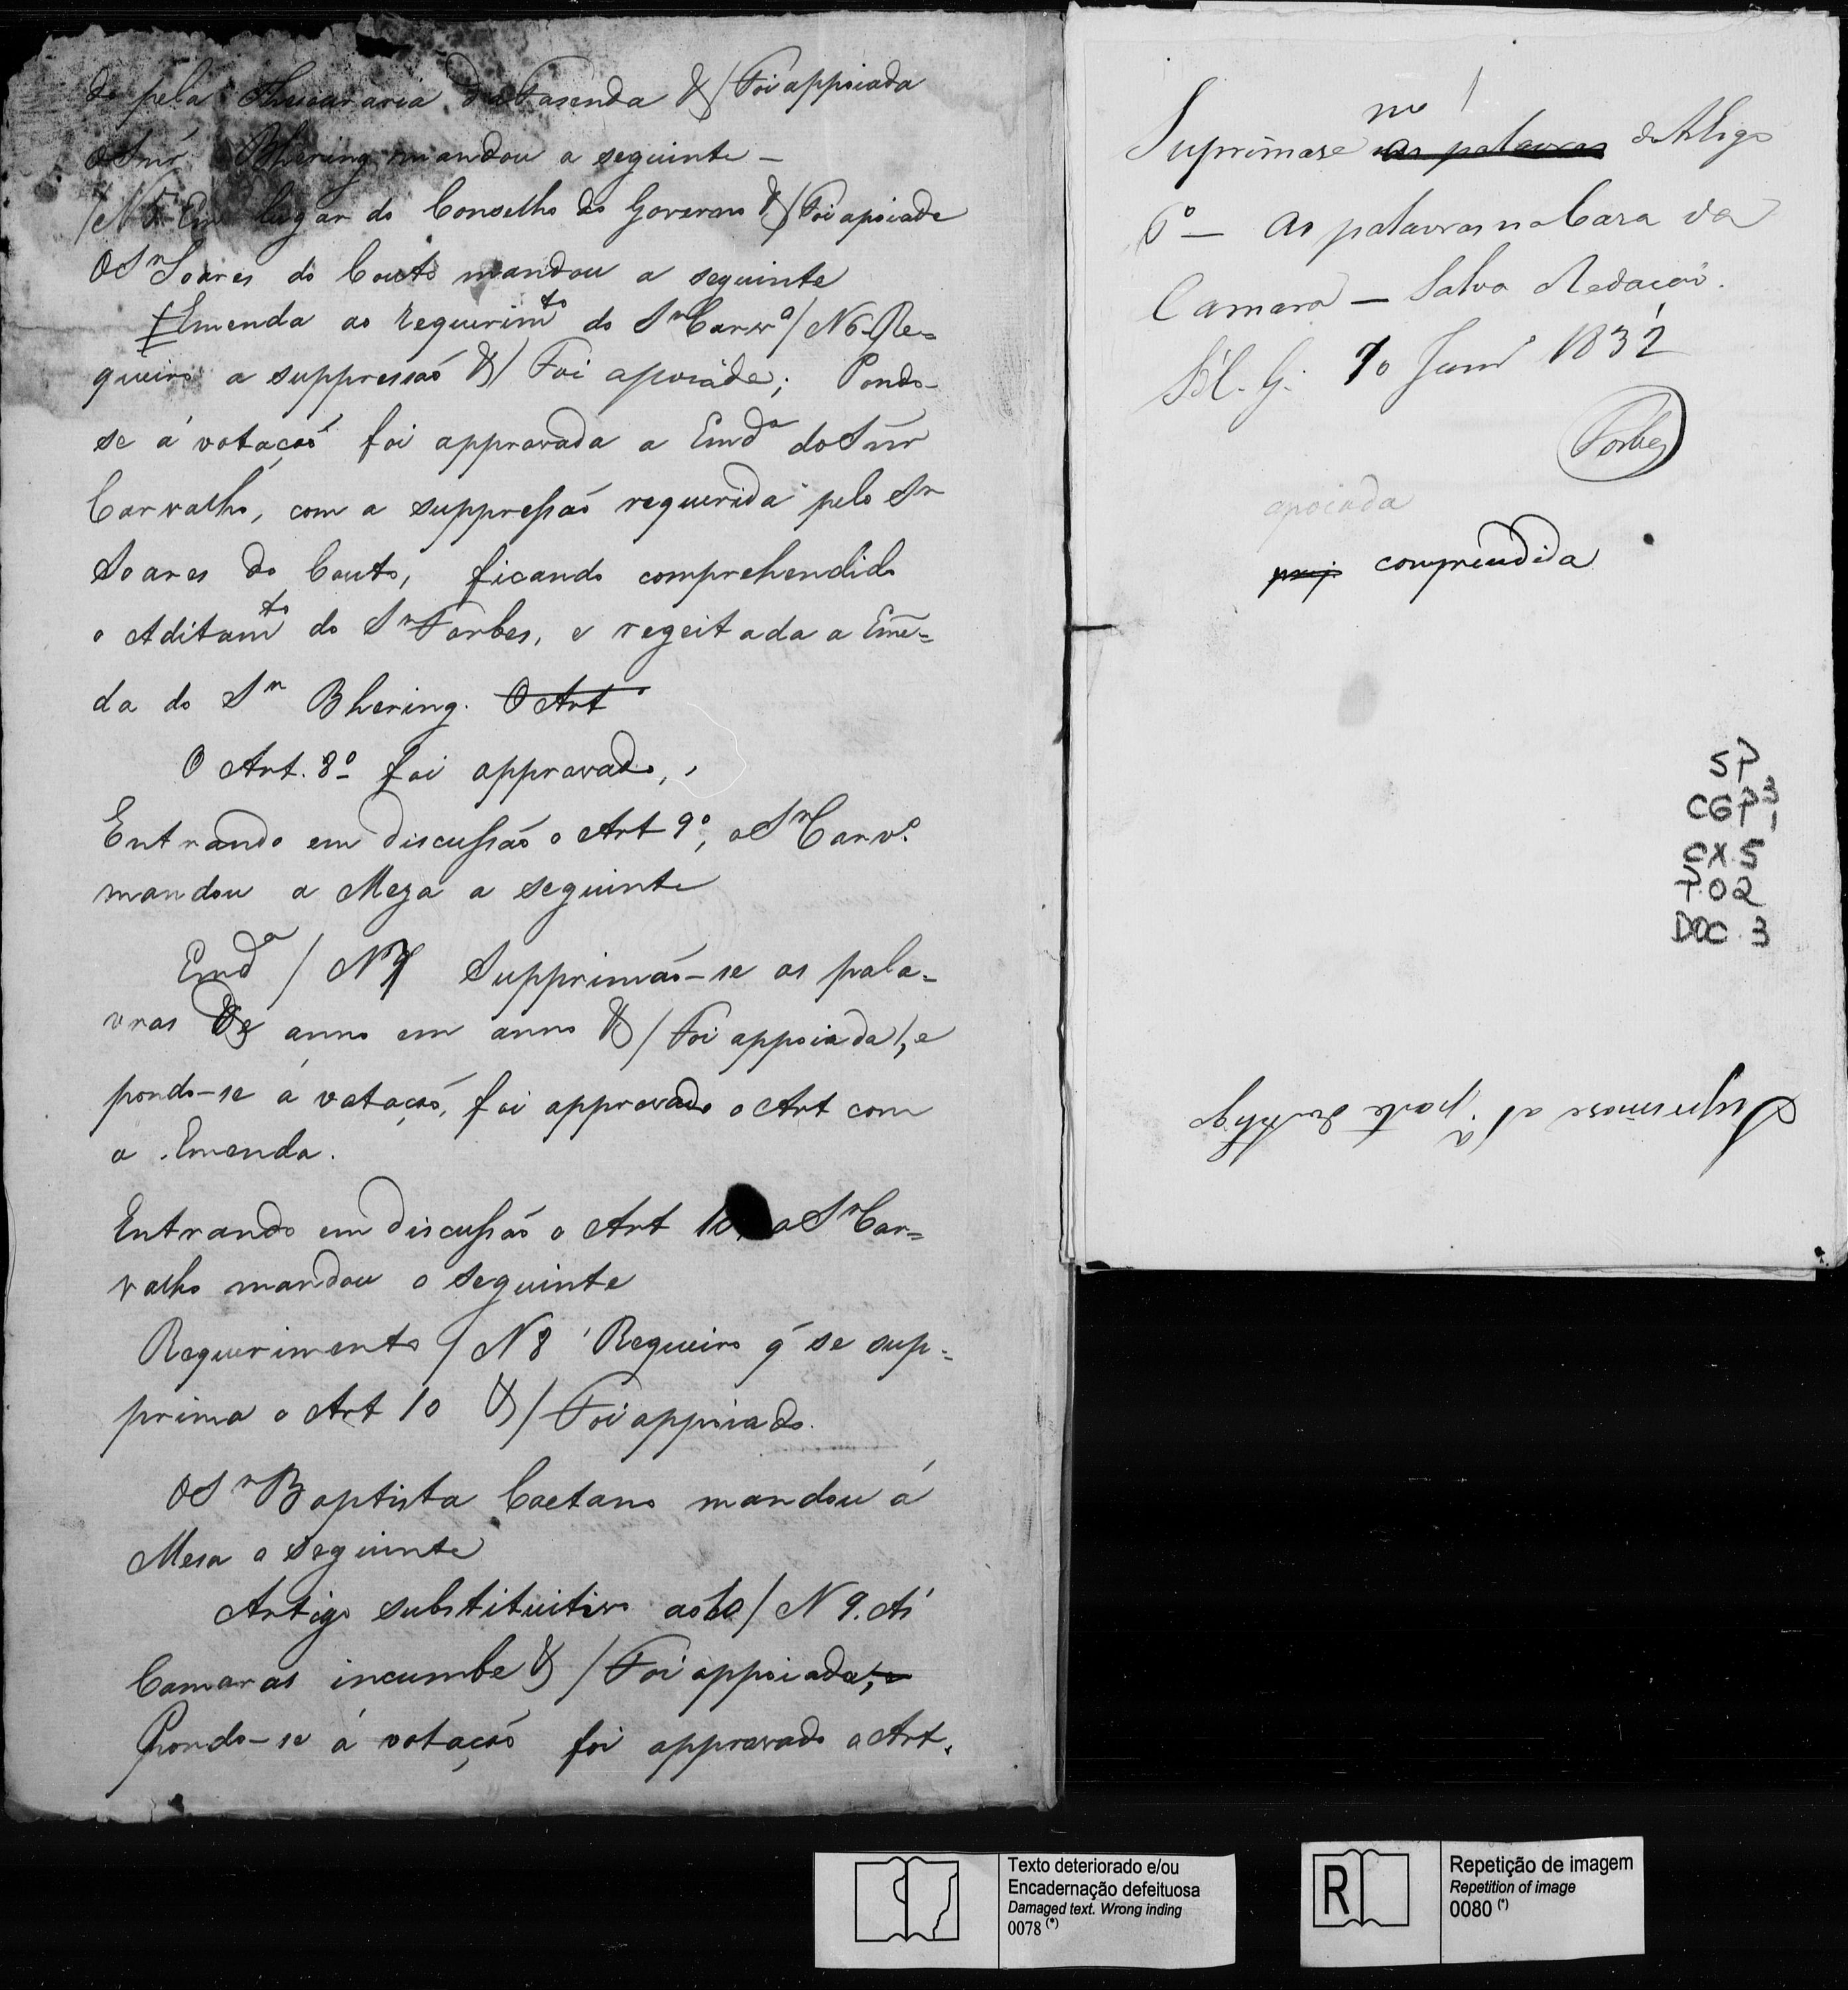 do pela Thesouraria da Fasenda &/ Foi appoiada
O Snr̃ Bhering mandou a seguinte –
/N 5 Em lugar do Conselho do Governo &/ Foi apoiada
O Sr. Soares do Couto mandou a seguinte
Emenda ao requerimto do Sr Carvo/ N 6 Re=
queiro a suppressaõ &/ Foi apoiada; Pondo-
se á votaçaõ foi approvada a Emda do Snr̃
Carvalho, com a suppressaõ requerida pelo Sr
Soares do Couto, ficando comprehendido
o Aditamto do Sr Forbes, e regeitada a Emẽ=
da do Sr Bhering. O Art
O Art. 8º foi approvado,
Entrando em discussaõ o Art 9º, o Sr Carvo.
mandou a Meza a seguinte
Emda / N 7 Supprimaõ-se as pala=
vras De anno em anno &/ Foi appoiada/, e
pondo-se á votaçaõ, foi approvado o Art com
a Emenda.
Entrando em discussaõ o Art 10, o Sr Car=
valho mandou o seguinte
Requerimento / N 8 Requeiro q̃ se sup=
prima o Art 10 &/ Foi appoiado.
O Sr Baptista Caetano mandou á
Mesa o seguinte
Artigo substituitivo ao 10/ N 9. Ás
Camaras incumbe &/ Foi appoiada/, e
Pondo-se á votaçaõ foi approvado o Art.
no
Suprimase as palavras do Artigo
6º – as palavras na Casa da
Camara – Salva a Redacaõ.
S. C. G. 10 Janro 1832
Forbes
apoiada
prej. comprendida
SP
CGP 3
1
CX. 5
P. 02
DOC. 3
Suprimase a 1ª parte do Artigo
Texto deteriorado e/ou
Encadernação defeituosa
Damaged text. Wrong inding
0078 (*)
R
Repetição de imagem
Repetition of image
0080 (*)